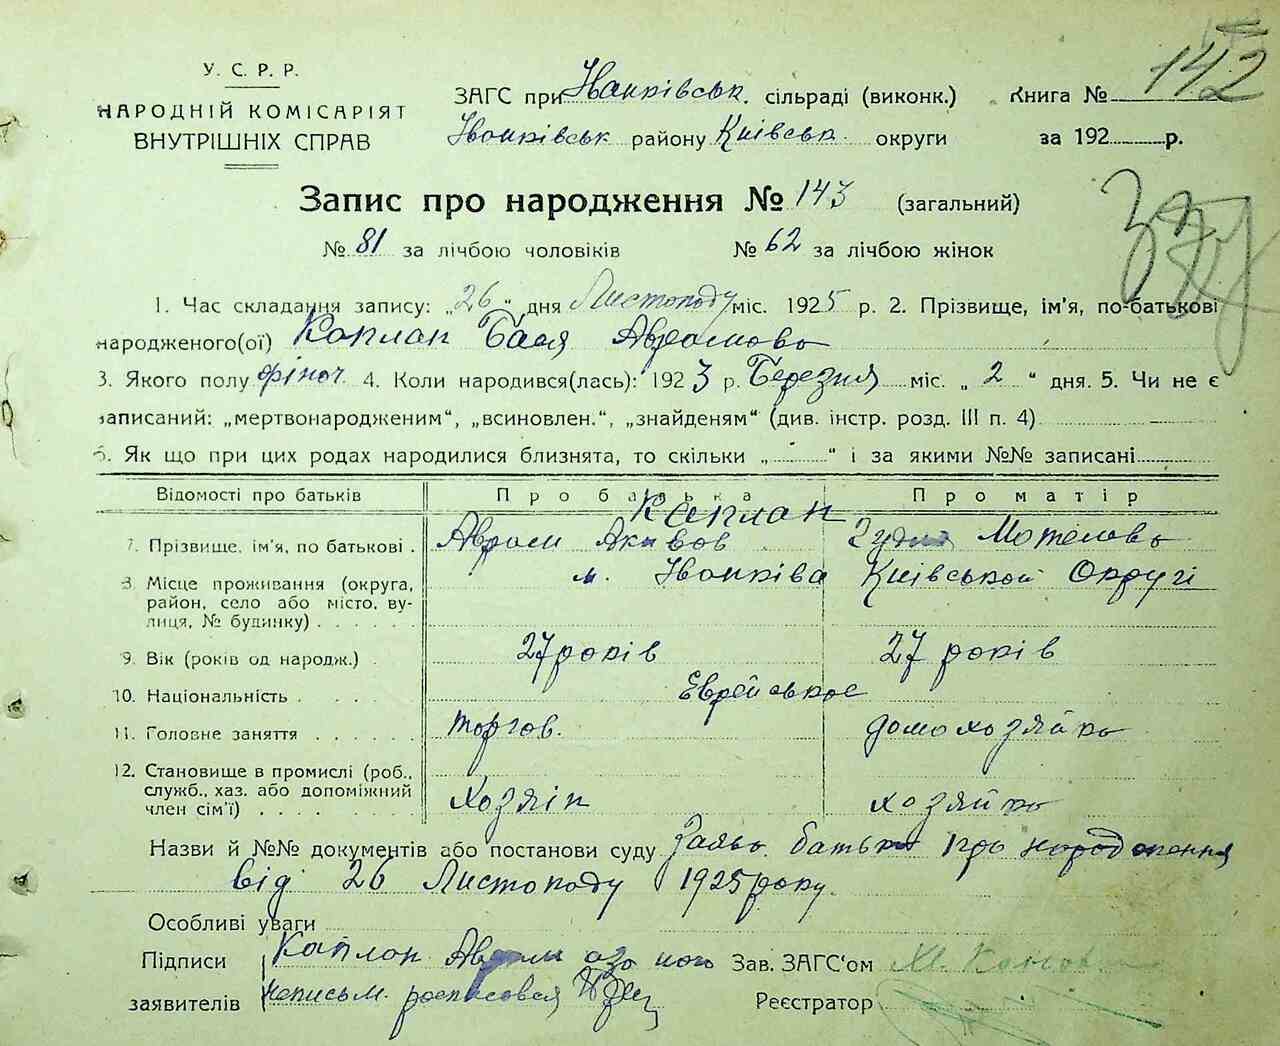 142
У. С. Р. Р.
НАРОДНІЙ КОМІСАРІЯТ
ВНУТРІШНІХ СПРАВ
ЗАГС при Іванківськ. сільраді (виконк.)
Книга №
Іванківськ району Київськ. округи
за 192 р.
Запис про народження № 143 (загальний)
№ 81 за лічбою чоловіків № 62 за лічбою жінок
1. Час складання запису: „26“ дня Листопаду міс. 1925 р. 2. Прізвище, ім'я, по-батькові
народженого(ої) Каплан Бася Аврамова
3. Якого полу жіноч. 4. Коли народився(лась): 1923 р. Березня міс. „2“ дня. 5. Чи не є
записаний: „мертвонародженим“, „всиновлен.“, „знайденям“ (див. інстр. розд. III п. 4)
6. Як що при цих родах народилися близнята, то скільки „ “ і за якими №№ записані
Відомості про батьків Про батька Про матір
Каплан
7. Прізвище, ім'я, по батькові . Аврам Акивов Мотелева
8. Місце проживання (округа, район, село або місто, вулиця, № будинку) . . . . . м. Іванківа Київськой Округі
9. Вік (років од народж.) . 27 років 27 років
10. Національність . . . . . Еврейськое
11. Головне заняття . . . . . торгов. домохозяйка
12. Становище в промислі (роб., служб., хаз. або допоміжний член сім'ї) . . . . . . . хозяін хозяйка
Назви й №№ документів або постанови суду Заява батька про народження
від 26 Листопаду 1925 року.
Особливі уваги
Підписи Каплан Аврам а за його Зав. ЗАГС'ом
заявителів неписьм. росписовся Реєстратор